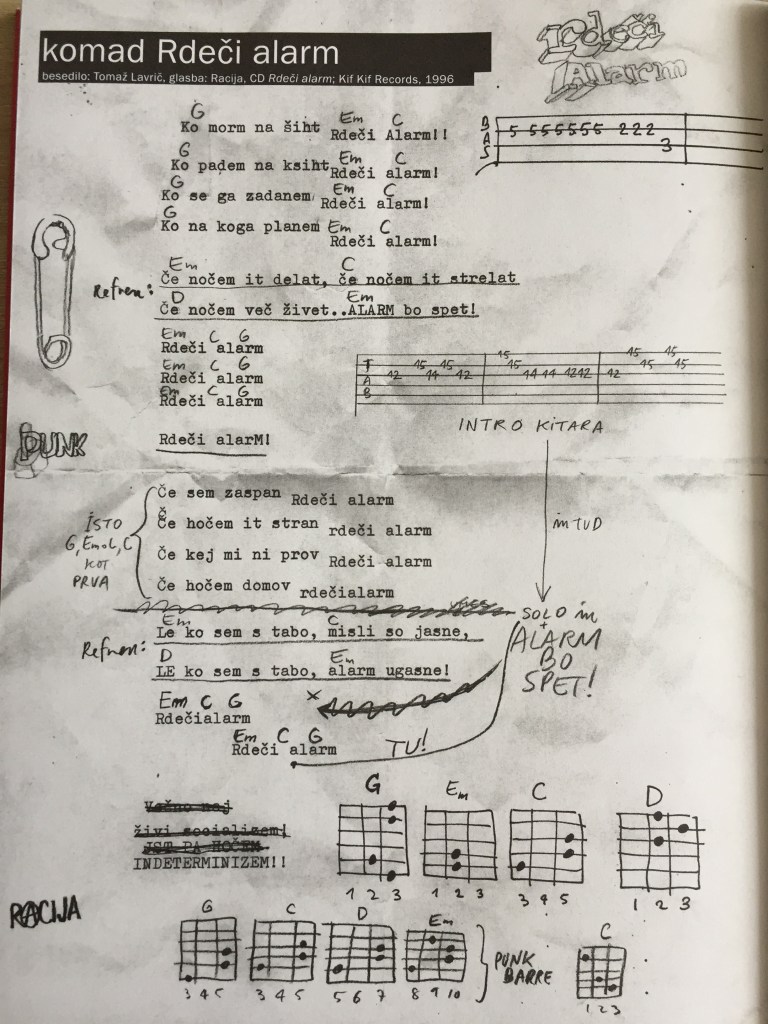 komad Rdeči alarm
besedilo: Tomaž Lavrič, glasba: Racija, CD Rdeči alarm; Kif Kif Records, 1996
Rdeči
Alarm
G Em C
Ko morm na šiht Rdeči Alarm!!
B A S
5 5 5 5 5 5 5 2 2 2 3
G Em C
Ko padem na ksiht Rdeči alarm!
G Em C
Ko se ga zadanem Rdeči alarm!
G Em C
Ko na koga planem Rdeči alarm!
Em C
Refren: Če nočem it delat, če nočem it strelat
D Em
Če nočem več živet..ALARM bo spet!
Em C G
Rdeči alarm
Em C G
Rdeči alarm
Em C G
Rdeči alarm
T A B
12 15 14 15 12 15 15 14 14 12 12 12 15 15 15 15
INTRO KITARA
PUNK
Rdeči alarM!
Če sem zaspan Rdeči alarm
Če hočem it stran rdeči alarm
Če kej mi ni prov Rdeči alarm
Če hočem domov rdečialarm
ISTO
G, Emol, C
KOT
PRVA
in TUD
SOLO in
+
ALARM
BO
SPET!
Em C
Refren: Le ko sem s tabo, misli so jasne,
D Em
LE ko sem s tabo, alarm ugasne!
Em C G
Rdečialarm
Em C G
Rdeči alarm
TU!
Večno naj
živi socializem!
JST PA HOČEM
INDETERMINIZEM!!
G Em C D
1 2 3 1 2 3 3 4 5 1 2 3
RACIJA
G C D Em C
3 4 5 3 4 5 5 6 7 8 9 10 1 2 3
PUNK
BARRE